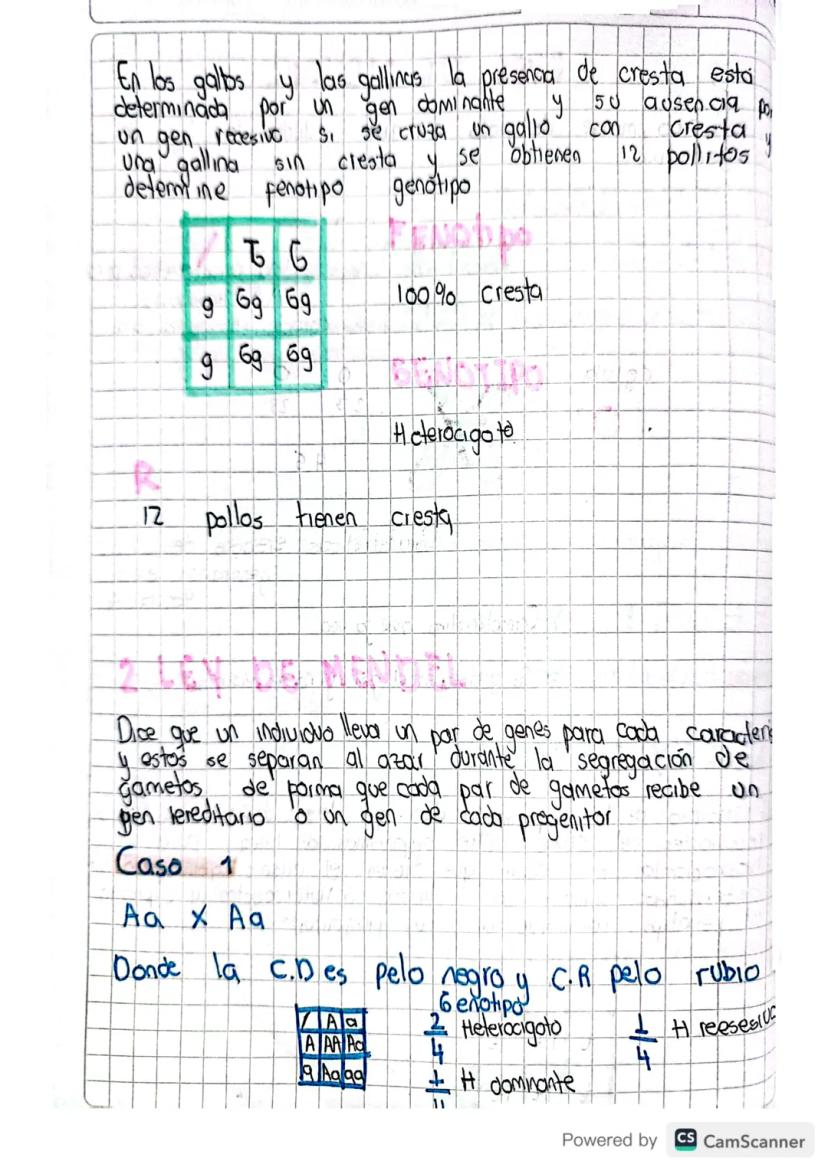 En los gallos y las gallinas la presencia de cresta esta
determinada por un gen dominante y su ausencia por
un gen recesivo si se cruza un gallo con cresta y
una gallina sin cresta y se obtienen 12 pollitos
determine fenotipo genotipo
/ G G
g Gg Gg
g Gg Gg
FENOtipo
100% cresta
GENOTIPO
Heterocigoto
R
12 pollos tienen cresta
2 LEY DE MENDEL
Dice que un individuo lleva un par de genes para cada caracter
y estos se separan al azar durante la segregación de
gametos de forma que cada par de gametos recibe un
gen ereditario o un gen de cada progenitor
Caso 1
Aa X Aa
Donde la C.D es pelo negro y C.R pelo rubio
Genotipo
/ A a
A AA Aa
a Aa aa
2/4 Heterocigoto
1/4 H reesesivo
1/4 H dominante
Powered by CS CamScanner